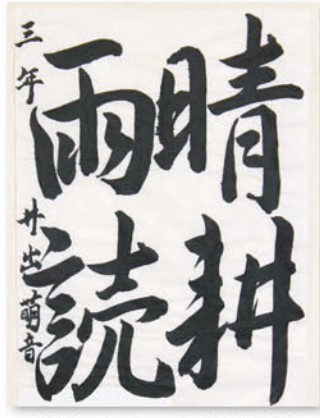 晴耕
雨読
三年 井出萌音